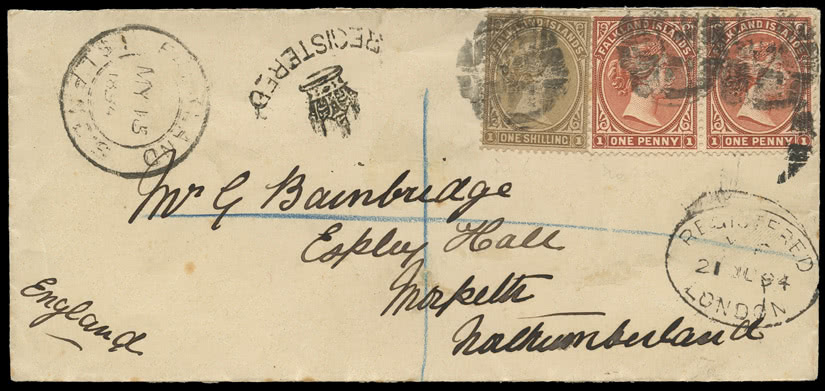 FALKLAND ISLANDS
MY 15
1884
REGISTERED
FALKLAND ISLANDS
1 ONE SHILLING 1
FALKLAND ISLANDS
1 ONE PENNY 1
FALKLAND ISLANDS
1 ONE PENNY 1
Mr G Bainbridge
Espley Hall
Morpeth
Northumberland
England
REGISTERED
21 JL 84
LONDON